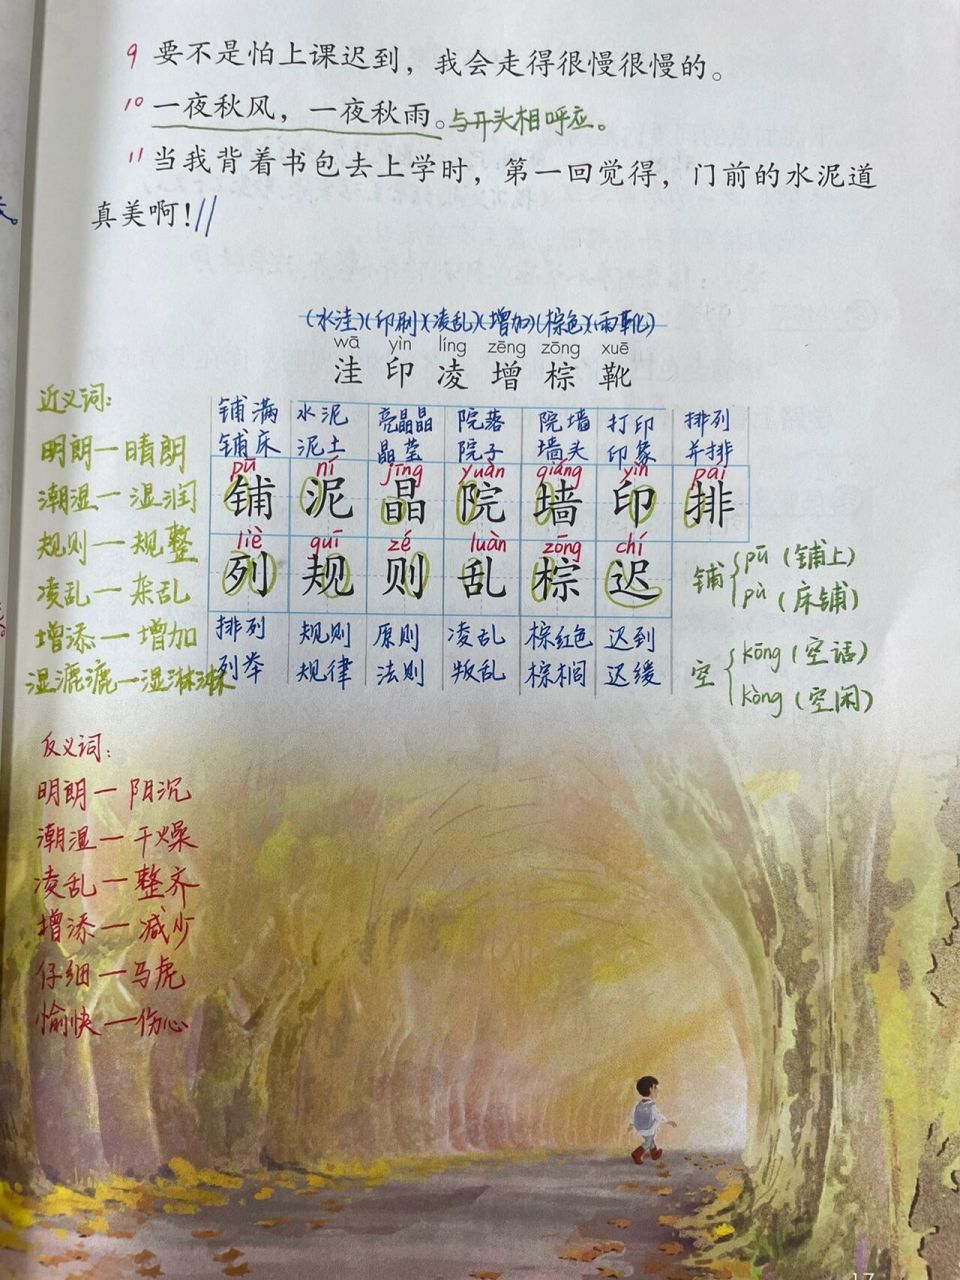 9 要不是怕上课迟到，我会走得很慢很慢的。
10 一夜秋风，一夜秋雨。与开头相呼应。
11 当我背着书包去上学时，第一回觉得，门前的水泥道
真美啊！//
(水洼)(印刷)(凌乱)(增加)(棕色)(雨靴)
wā yìn líng zēng zōng xuē
洼 印 凌 增 棕 靴
近义词：
明朗—晴朗
潮湿—湿润
规则—规整
凌乱—杂乱
增添—增加
湿漉漉—湿淋淋
铺满 水泥 亮晶晶 院落 院墙 打印 排列
铺床 泥土 晶莹 院子 墙头 印象 并排
pū ní jīng yuàn qiáng yìn pái
铺 泥 晶 院 墙 印 排
liè guī zé luàn zōng chí
列 规 则 乱 棕 迟
排列 规则 原则 凌乱 棕红色 迟到
列举 规律 法则 叛乱 棕榈 迟缓
铺 pū (铺上)
pù (床铺)
空 kōng (空话)
kòng (空闲)
反义词：
明朗—阴沉
潮湿—干燥
凌乱—整齐
增添—减少
仔细—马虎
愉快—伤心
17